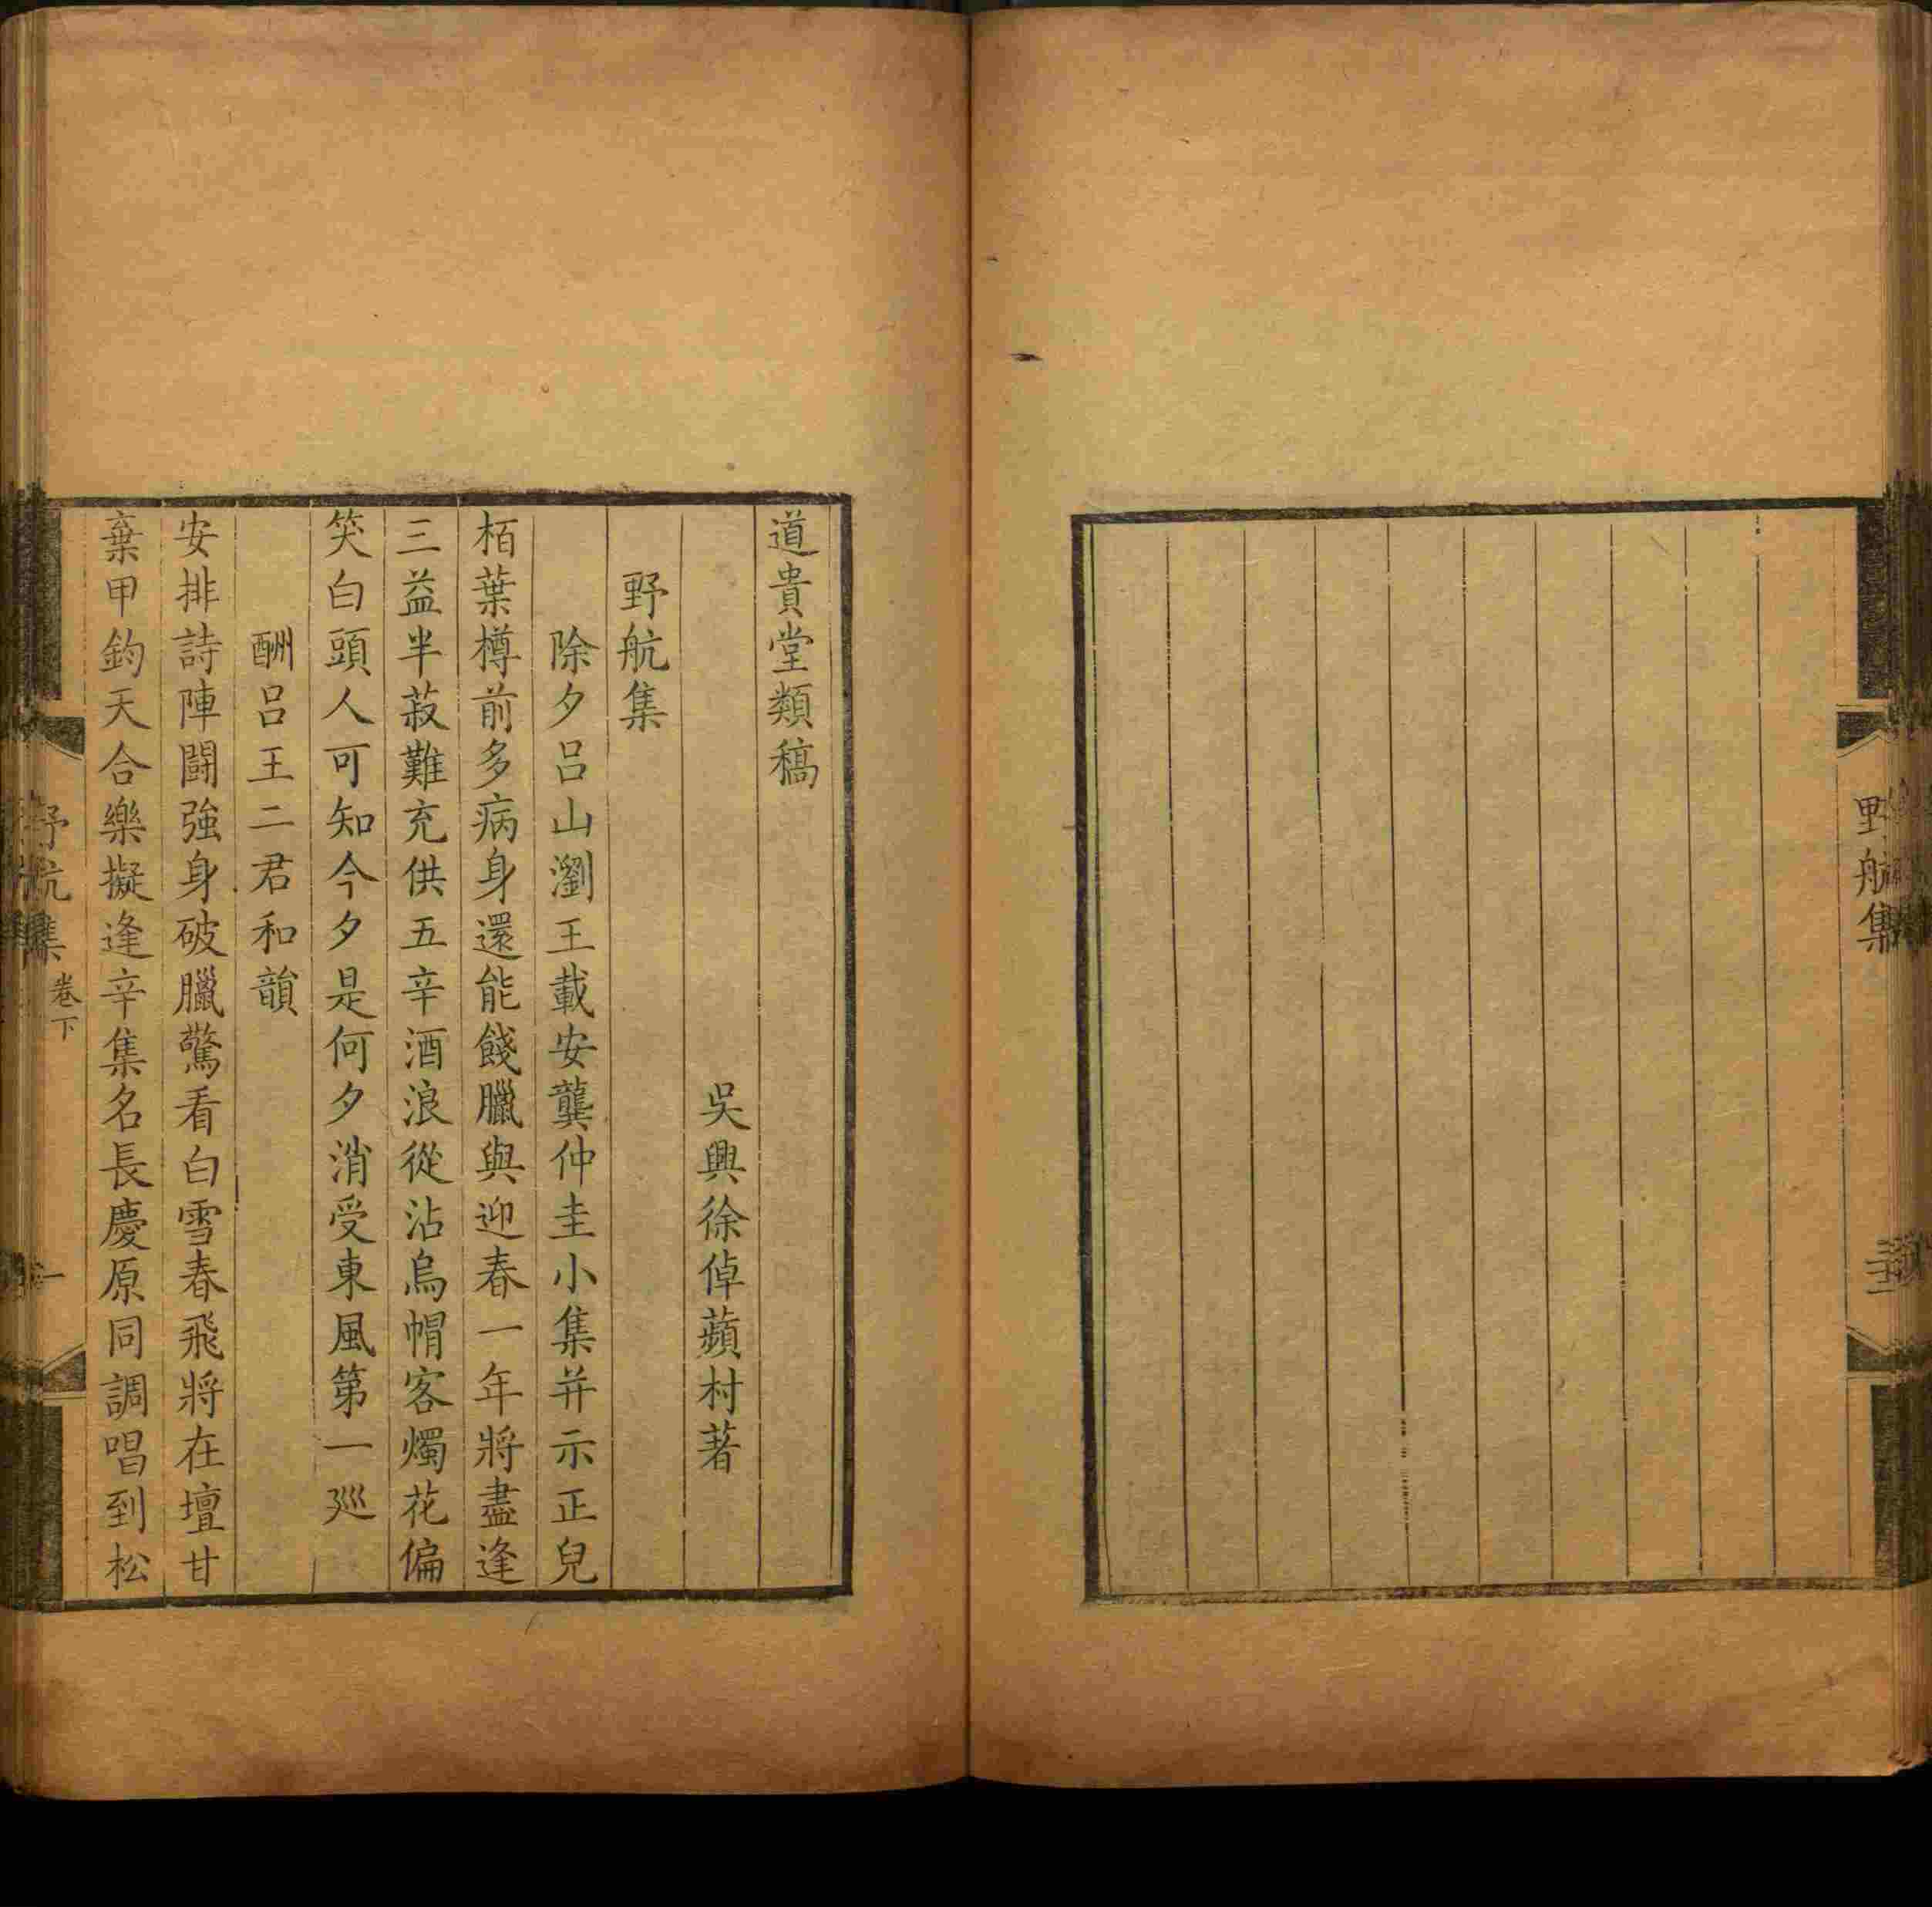 野航集
道貴堂類稿
吳興徐倬蘋村著
野航集
除夕呂山瀏王載安龔仲圭小集并示正兒
栢葉樽前多病身還能餞臘與迎春一年將盡逢
三益半菽難充供五辛酒浪從沾烏帽客燭花偏
笑白頭人可知今夕是何夕消受東風第一巡
酬呂王二君和韻
安排詩陣鬪強身破臘驚看白雪春飛將在壇甘
棄甲鈞天合樂擬逢辛集名長慶原同調唱到松
野航集 卷下 一